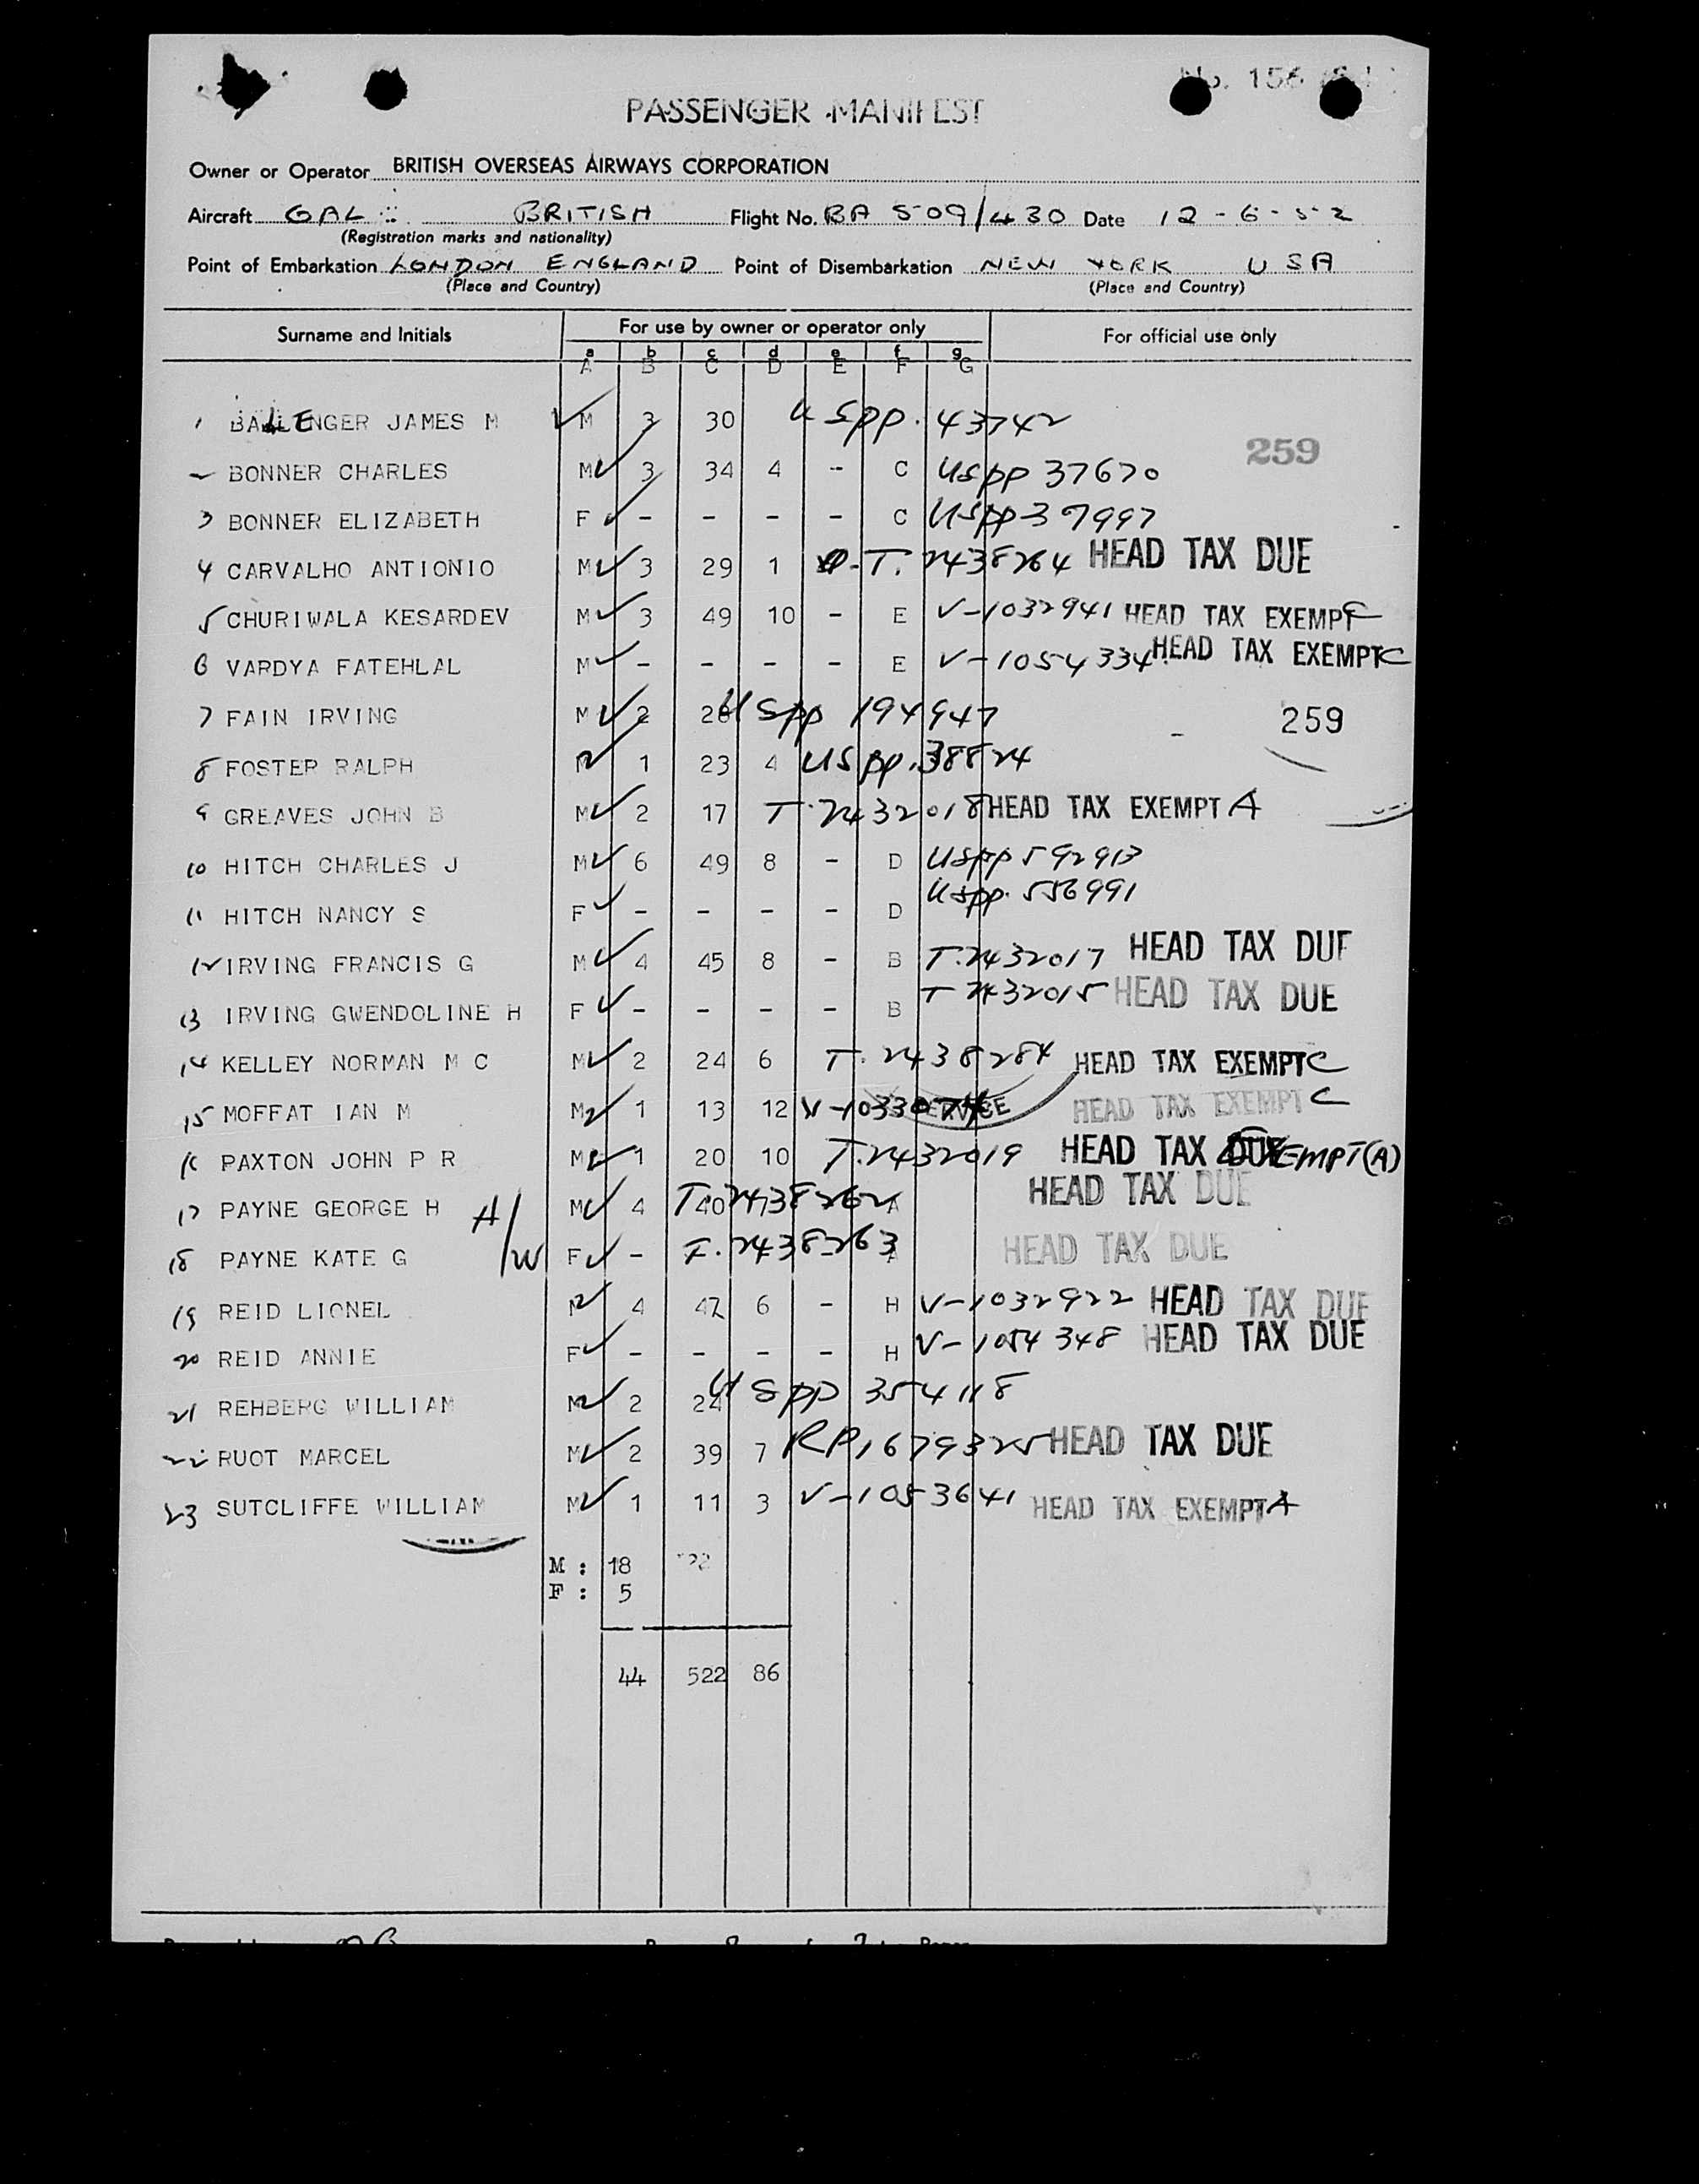 No. 156
PASSENGER MANIFEST
Owner or Operator BRITISH OVERSEAS AIRWAYS CORPORATION
Aircraft GAL BRITISH Flight No. BA 509/430 Date 12-6-52
(Registration marks and nationality)
Point of Embarkation LONDON ENGLAND Point of Disembarkation NEW YORK USA
(Place and Country) (Place and Country)
Surname and Initials For use by owner or operator only For official use only
a b c d e f g
A B C D E F G
1 BALLENGER JAMES M M 3 30 USpp. 43742
259
2 BONNER CHARLES M 3 34 4 - C USpp 37670
3 BONNER ELIZABETH F - - - - C USpp 37997
4 CARVALHO ANTIONIO M 3 29 1 T. 2438264 HEAD TAX DUE
5 CHURIWALA KESARDEV M 3 49 10 - E V-1032941 HEAD TAX EXEMPT C
6 VARDYA FATEHLAL M - - - - E V-1054334 HEAD TAX EXEMPT C
7 FAIN IRVING M 2 26 USpp 194947 259
8 FOSTER RALPH M 1 23 4 USpp. 38824
9 GREAVES JOHN B M 2 17 T. 2432018 HEAD TAX EXEMPT A
10 HITCH CHARLES J M 6 49 8 - D USpp 592913
11 HITCH NANCY S F - - - - D USpp. 556991
12 IRVING FRANCIS G M 4 45 8 - B T. 2432017 HEAD TAX DUE
13 IRVING GWENDOLINE H F - - - - B T 2432015 HEAD TAX DUE
14 KELLEY NORMAN M C M 2 24 6 T. 2438284 HEAD TAX EXEMPT C
15 MOFFAT IAN M M 1 13 12 V-1033074 HEAD TAX EXEMPT C
16 PAXTON JOHN P R M 1 20 10 T. 2432019 HEAD TAX DUE EXEMPT (A)
17 PAYNE GEORGE H H/W M 4 40 7 T. 2438262 A HEAD TAX DUE
18 PAYNE KATE G F - T. 2438263 A HEAD TAX DUE
19 REID LIONEL M 4 47 6 - H V-1032922 HEAD TAX DUE
20 REID ANNIE F - - - - H V-1054348 HEAD TAX DUE
21 REHBERG WILLIAM M 2 24 USpp 354118
22 RUOT MARCEL M 2 39 7 RP 1679325 HEAD TAX DUE
23 SUTCLIFFE WILLIAM M 1 11 3 V-1053641 HEAD TAX EXEMPT A
M : 18
F : 5
44 522 86